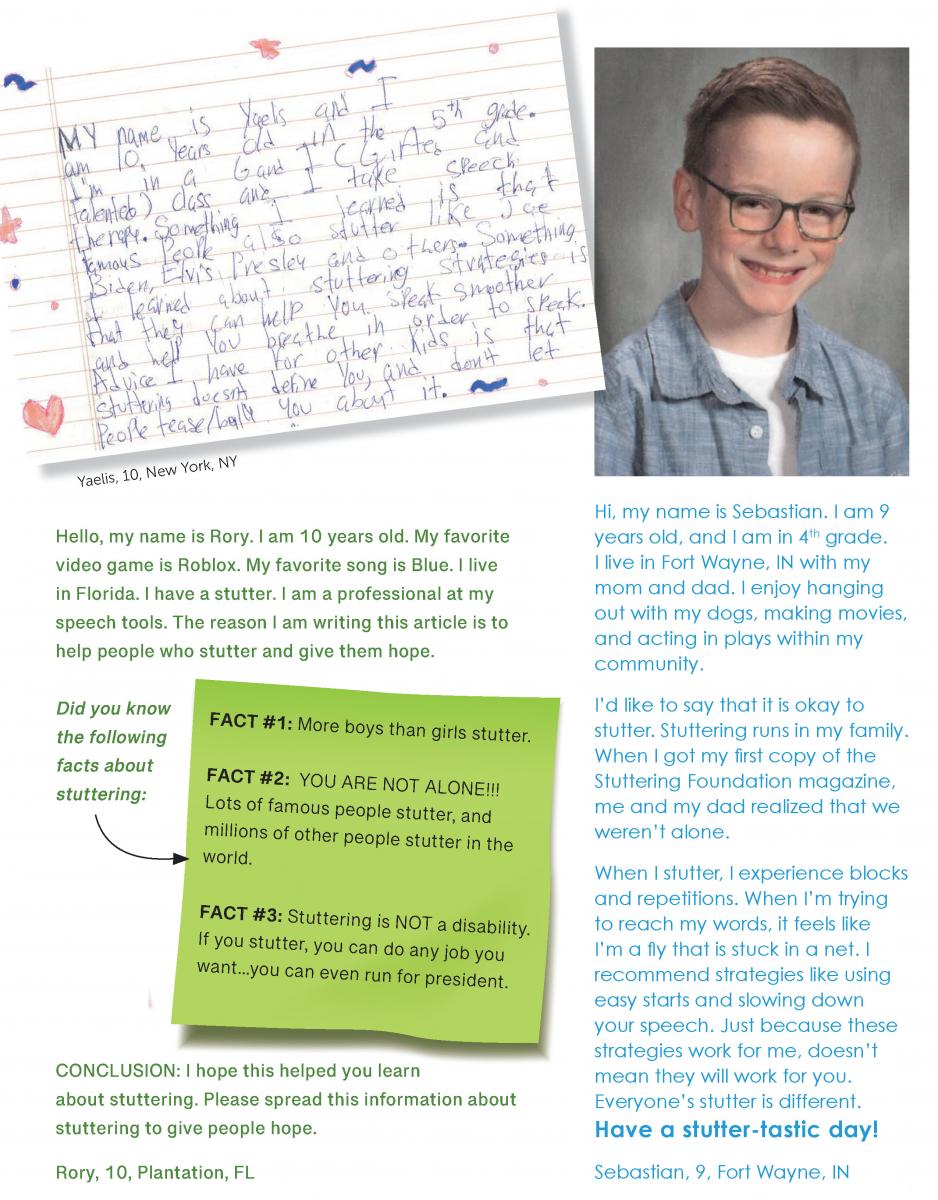 MY name is Yaelis and I
am 10. Years old in the 5th grade.
I'm in a Gand T (Gifted and
talented) class and I take speech
therapy. Something I learned is that
famous People also stutter like Joe
Biden, Elvis Presley and others. Something
I learned about stuttering strategies is
that they can help you speak smoother
and help you breathe in order to speak.
Advice I have for other kids is that
stuttering doesnt define You, and don't let
People tease/bully you about it.
Yaelis, 10, New York, NY
Hello, my name is Rory. I am 10 years old. My favorite
video game is Roblox. My favorite song is Blue. I live
in Florida. I have a stutter. I am a professional at my
speech tools. The reason I am writing this article is to
help people who stutter and give them hope.
Did you know
the following
facts about
stuttering:
FACT #1: More boys than girls stutter.
FACT #2: YOU ARE NOT ALONE!!!
Lots of famous people stutter, and
millions of other people stutter in the
world.
FACT #3: Stuttering is NOT a disability.
If you stutter, you can do any job you
want...you can even run for president.
CONCLUSION: I hope this helped you learn
about stuttering. Please spread this information about
stuttering to give people hope.
Rory, 10, Plantation, FL
Hi, my name is Sebastian. I am 9
years old, and I am in 4th grade.
I live in Fort Wayne, IN with my
mom and dad. I enjoy hanging
out with my dogs, making movies,
and acting in plays within my
community.
I'd like to say that it is okay to
stutter. Stuttering runs in my family.
When I got my first copy of the
Stuttering Foundation magazine,
me and my dad realized that we
weren't alone.
When I stutter, I experience blocks
and repetitions. When I'm trying
to reach my words, it feels like
I'm a fly that is stuck in a net. I
recommend strategies like using
easy starts and slowing down
your speech. Just because these
strategies work for me, doesn't
mean they will work for you.
Everyone's stutter is different.
Have a stutter-tastic day!
Sebastian, 9, Fort Wayne, IN